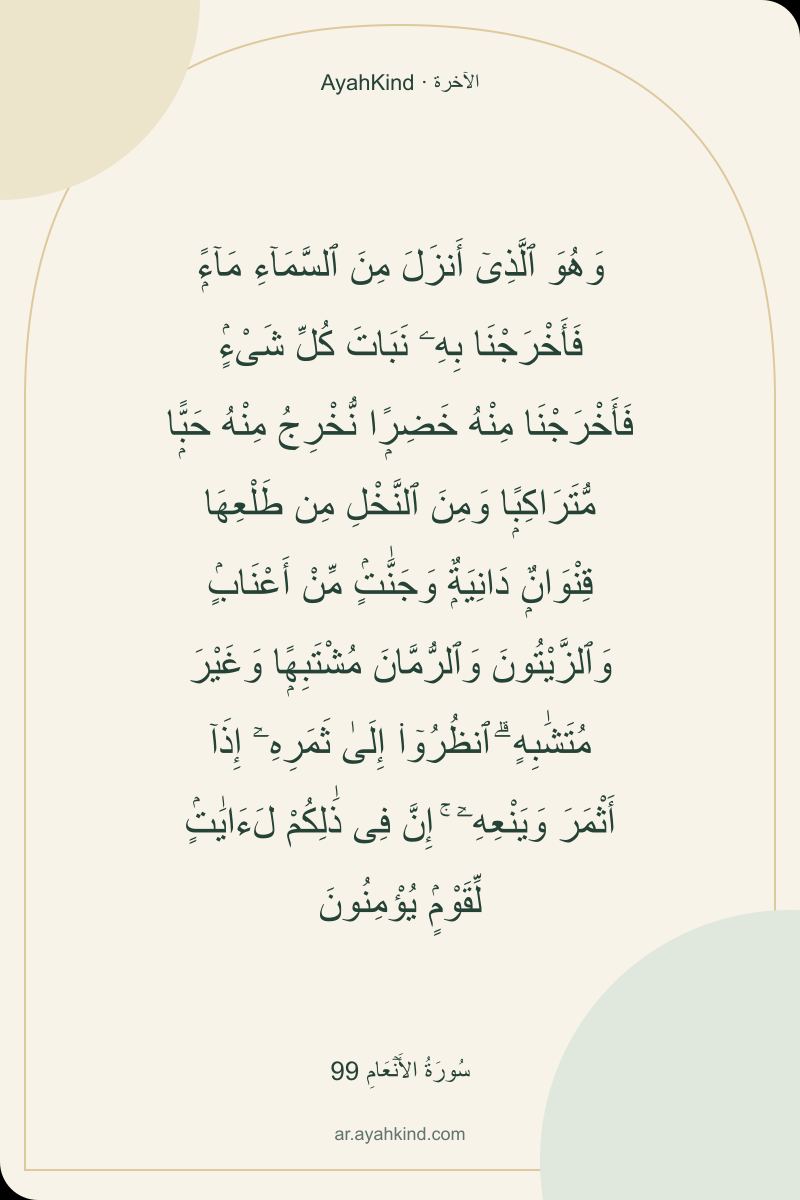 AyahKind · الآخرة
وَهُوَ ٱلَّذِىٓ أَنزَلَ مِنَ ٱلسَّمَآءِ مَآءًۭ
فَأَخْرَجْنَا بِهِۦ نَبَاتَ كُلِّ شَىْءٍۢ
فَأَخْرَجْنَا مِنْهُ خَضِرًۭا نُّخْرِجُ مِنْهُ حَبًّۭا
مُّتَرَاكِبًۭا وَمِنَ ٱلنَّخْلِ مِن طَلْعِهَا
قِنْوَانٌۭ دَانِيَةٌۭ وَجَنَّـٰتٍۢ مِّنْ أَعْنَابٍۢ
وَٱلزَّيْتُونَ وَٱلرُّمَّانَ مُشْتَبِهًۭا وَغَيْرَ
مُتَشَـٰبِهٍ ۗ ٱنظُرُوٓا۟ إِلَىٰ ثَمَرِهِۦٓ إِذَآ
أَثْمَرَ وَيَنْعِهِۦٓ ۚ إِنَّ فِى ذَٰلِكُمْ لَـَٔايَـٰتٍۢ
لِّقَوْمٍۢ يُؤْمِنُونَ
سُورَةُ الأَنۡعَامِ 99
ar.ayahkind.com